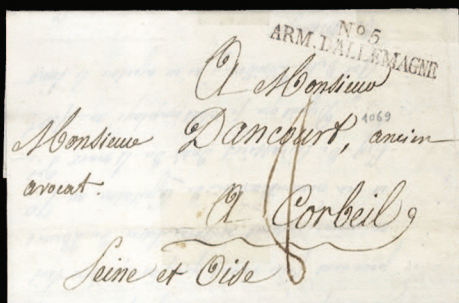 No 5
ARM. D'ALLEMAGNE
A Monsieur
1069
Monsieur Dancourt, ancien
avocat.
A Corbeil
Seine et Oise